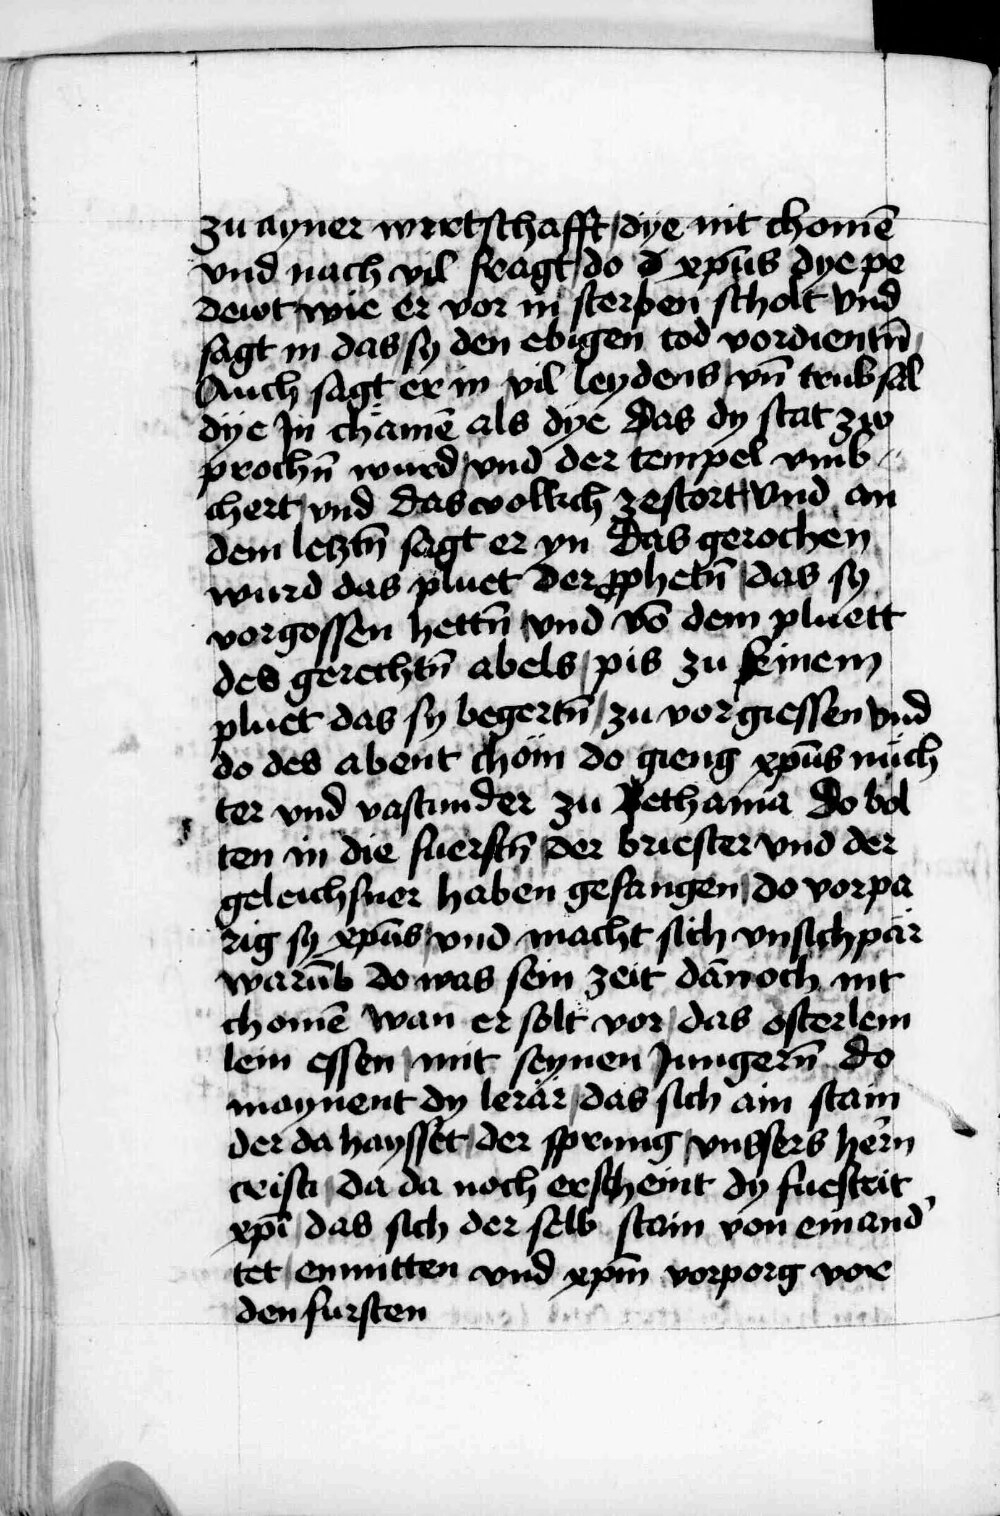 zu ayner wirtschafft / dye nit chomē
vnd nach vil fragt / do d xp̄us dye pe
dewt wie er vor in sterben scholt vnd
sagt in das / sy den ebigen tod vordientn̄ /
Auch sagt er in / vil leydens / vn̄ trubsal
dye Jn chāmē als dye Das dy stat zw
prochn̄ wurd / vnd der tempel vmb
chert / vnd das volkch zestort / Vnd an
dem letztn̄ sagt er yn Das gerochen
wurd das pluet der ꝓphetn̄ / das sy
vorgossen hettn̄ / vnd võ dem pluett
des gerechtn̄ abels / pis zu seinem
pluet das sy begertn̄ / zu vorgiessen vnd
do des abent chöm do gieng xp̄us nüch
ter vnd vastunder zu Pethania Do bol
ten in die fuerstn̄ / der briester vnd der
geleichsner haben gefangen / do vorpa
rig sy xp̄us / vnd macht sich vnsichpär
warūb do was sein zeit dānoch nit
chomē wan er solt vor / das osterlem
lein essen / mit seynen Jungern̄ do
maynent dy lerär / das sich ain stain
der da haysset / der sprung / vnssers hern̄
cristi / da da noch erscheint dy fuestrit
xp̄i / das sich der selb stain von einand'
tet / enmitten vnd xp̄m vorporg vor
den fursten